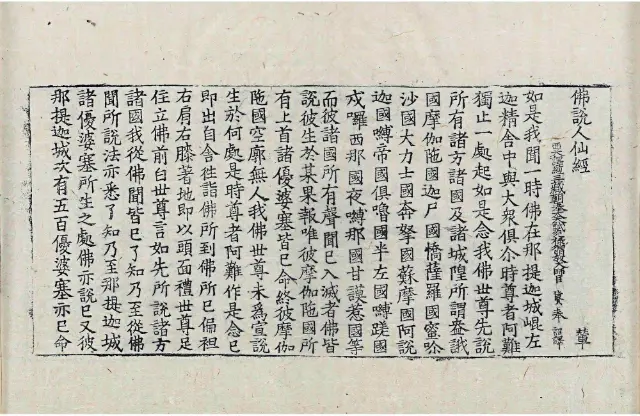 佛說人仙經
輦
奉 詔譯
如是我聞一時佛在那提迦城崐左
迦精舍中與大衆俱尒時尊者阿難
獨止一處起如是念我佛世尊先說
所有諸方諸國及諸城隍所謂盎誐
國摩伽陁國迦尸國憍薩羅國蜜吟
沙國大力士國奔拏國蘇摩國阿說
迦國嚩帝國俱嚕國半左國嚩蹉國
戍囉西那國夜嚩那國甘謨惹國等
而彼諸國所有聲聞已入滅者佛皆
說彼生於某果報唯彼摩伽陁國所
有上首諸優婆塞皆已命終彼摩伽
陁國空廓無人我佛世尊未為宣說
生於何處是時尊者阿難作是念已
即出自舍往詣佛所到佛所已偏袒
右肩右膝著地即以頭面禮世尊足
住立佛前白世尊言如先所說諸方
諸國我從佛聞皆已了知乃至從佛
聞所說法亦悉了知乃至那提迦城
諸優婆塞所生之處佛亦說已又彼
那提迦城次有五百優婆塞亦已命